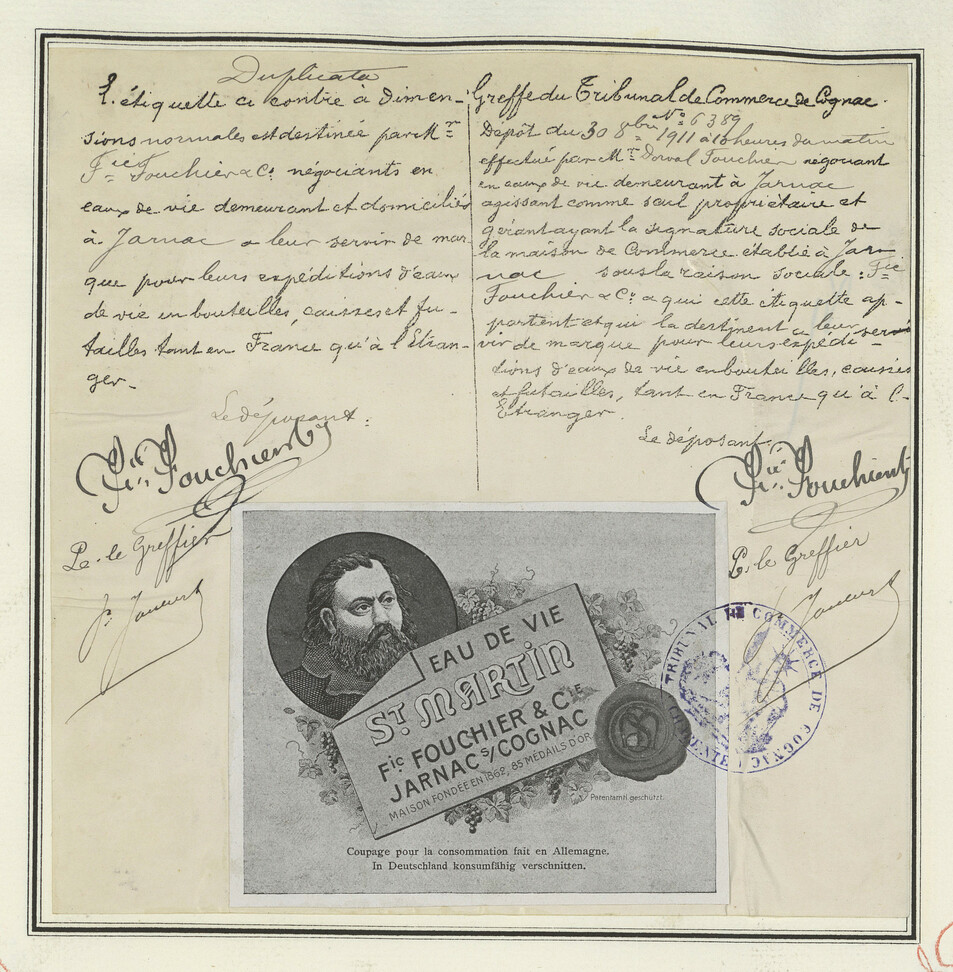 Duplicata
L'étiquette ci contre à dimen-
sions normales est destinée par Mr
Fic Fouchier & Cie négociants en
eaux de vie demeurant et domiciliés
à Jarnac a leur servir de mar-
que pour leurs expéditions d'eaux
de vie en bouteilles, caisses et fu-
tailles tant en France qu'à l'Etran-
ger.
Le déposant:
Fic Fouchier & Cie
P. le Greffier
Greffe du Tribunal de Commerce de Cognac.
No 6389
Dépôt du 30 8bre 1911 à 10 heures du matin
effectué par Mr Dorval Fouchier négociant
en eaux de vie demeurant à Jarnac
agissant comme seul propriétaire et
gérant ayant la signature sociale de
la maison de Commerce établie à Jar-
nac sous la raison sociale: Fic
Fouchier & Cie a qui cette étiquette ap-
partient et qui la destinent a leur servir
vir de marque pour leurs expédi-
tions d'eaux de vie en bouteilles, caisses
et futailles, tant en France qu'à l'-
Etranger.
Le déposant.
Fic Fouchier & Cie
P. le Greffier
EAU DE VIE
ST MARTIN
FIC FOUCHIER & CIE
JARNAC S/COGNAC
MAISON FONDÉE EN 1862, 85 MÉDAILS D'OR
Patentamtl. geschützt.
Coupage pour la consommation fait en Allemagne.
In Deutschland konsumfähig verschnitten.
TRIBUNAL DE COMMERCE DE COGNAC